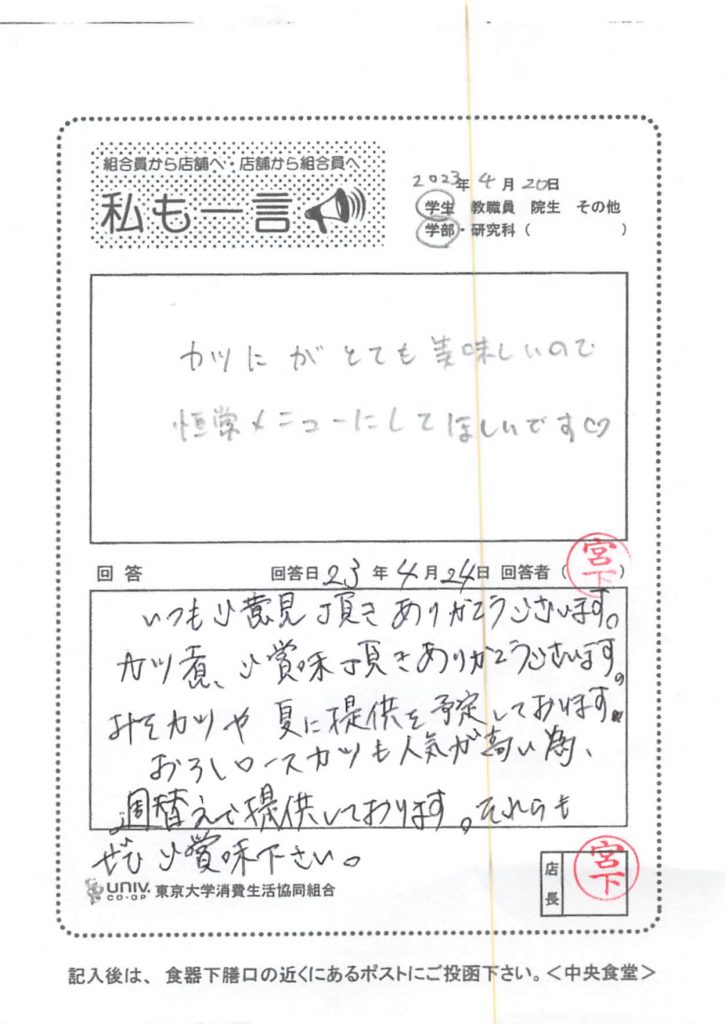 組合員から店舗へ・店舗から組合員へ
私も一言
2023年 4月 20日
学生 教職員 院生 その他
学部・研究科（　　　　）
カツにがとても美味しいので
恒常メニューにしてほしいです♡
回答 回答日 23年 4月 24日 回答者（宮下）
いつもご意見頂きありがとうございます。
カツ煮、ご賞味頂きありがとうございます。
みそカツや夏に提供を予定しております。
おろしロースカツも人気が高い為、
週替えで提供しております。それらも
ぜひご賞味下さい。
店長 宮下
UNIV. CO-OP 東京大学消費生活協同組合
記入後は、食器下膳口の近くにあるポストにご投函下さい。＜中央食堂＞